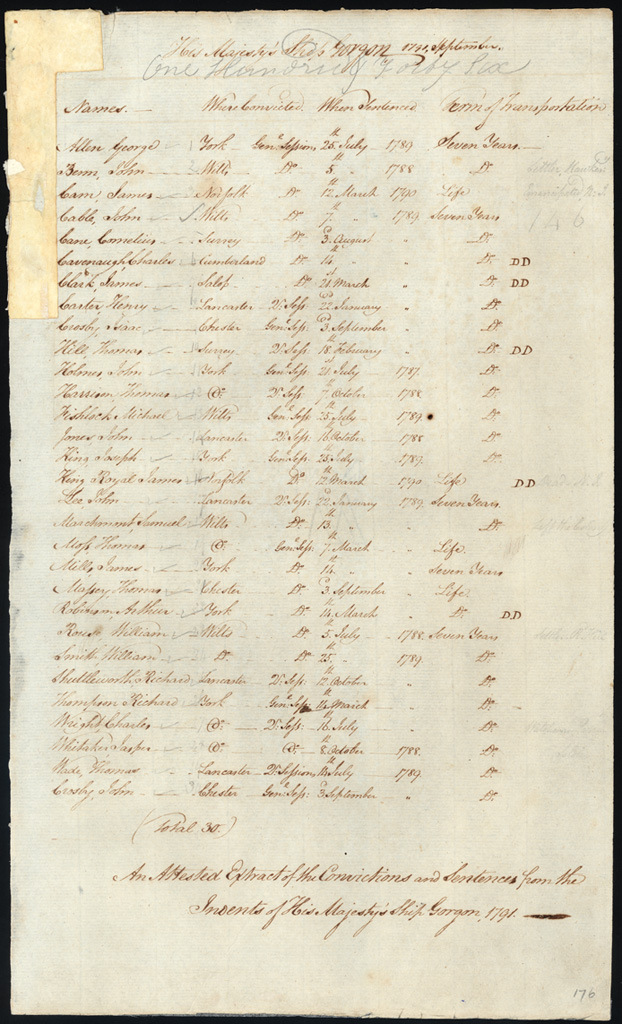 His Majesty's Ship Gorgon 1791, September.
One Hundred Forty Six
Names. Where Convicted. When Sentenced Term of Transportation
Allen George York Genl. Sessions, 25th July 1789 Seven Years
Benn, John Wilts Do. 5th " 1788 Do.
Cam, James Norfolk Do. 12th March 1790 Life
Cable, John Wilts Do. 7th " 1789 Seven Years
146
Cane, Cornelius Surrey Do. 3d August " Do.
Cavenaugh, Charles Cumberland Do. 14th " " Do. DD
Clark, James Salop Do. 21st March " Do. DD
Carter Henry Lancaster Qr. Sess. 22d January " Do.
Crosby, Isaac Chester Genl. Sess. 3d September " Do.
Hill, Thomas Surrey Qr. Sess. 18th February " Do. DD
Holmes John York Genl. Sess. 21st July 1787 Do.
Harrison, Thomas Do. Qr. Sess. 7th October 1788 Do.
Michael Wilts Genl. Sess. 25th July 1789 Do.
Jones, John Lancaster Qr. Sess. 16th October 1788 Do.
King, Joseph York Genl. Sess: 25th July 1789 Do.
King Royal James Norfolk Do. 12th March 1790 Life DD
Lee John Lancaster Qr. Sess. 22d January 1789 Seven Years
Marchment, Samuel Wilts Do. 13th " " Do.
Moss Thomas Do. Genl. Sess: 7th March " Life
Mills, James York Do. 14th " " Seven Years
Massey, Thomas Chester Do. 3d September " Life
Robinson Arthur York Do. 14th March " Do. DD
William Wilts Do. 5th July 1788 Seven Years
Smith William Do. Do. 25th " 1789 Do.
Shuttleworth, Richard Lancaster Qr. Sess: 12th October " Do.
Thompson Richard York Genl. Sess: 14th March " Do.
Wright Charles Do. Qr. Sess: 16th July " Do.
Whitaker Jasper Do. Do. 8th October 1788 Do.
Wade, Thomas Lancaster Qr. Session, July 1789 Do.
Crosby, John Chester Genl. Sess: 3d September " Do.
(Total 30.)
An Attested Extract of the Convictions and Sentences from the
Indents of His Majesty's Ship Gorgon, 1791.
176